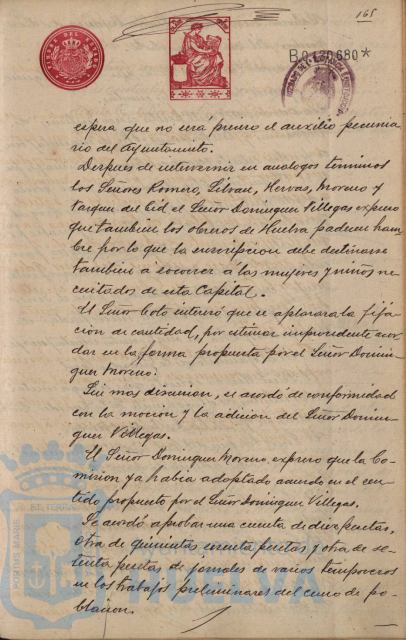 165
B0120680*
espera que no será preciso el auxilio pecunia
rio del Ayuntamiento.
Despues de intervenir en analogos terminos
los Señores Romero, Silvan, Hervas, Moreno y
Vazquez del Cid el Señor Dominguez Villegas expuso
que tambien los obreros de Huelva padecen ham
bre por lo que la suscripcion debe destinarse
tambien á socorrer á las mujeres y niños ne
cesitados de esta Capital.
El Señor Coto interesó que se aplazara la fija
ción de cantidad, por estimar improcedente acor
dar en la forma propuesta por el Señor Domin
guez Moreno.
Sin mas discusion, se acordó de conformidad
con la mocion y la adicion del Señor Domin
guez Villegas.
El Señor Dominguez Moreno expreso que la Co
mision ya habia adoptado acuerdo en el sen
tido propuesto por el Señor Dominguez Villegas.
Se acordó aprobar una cuenta de diez pesetas,
otra de quinientas cuenta pesetas y otra de se
tenta pesetas de jornales de varios temporeros
en los trabajos preliminares del censo de po
blacion.
PORTUS MARIS
ET TERRAE
HUELVA